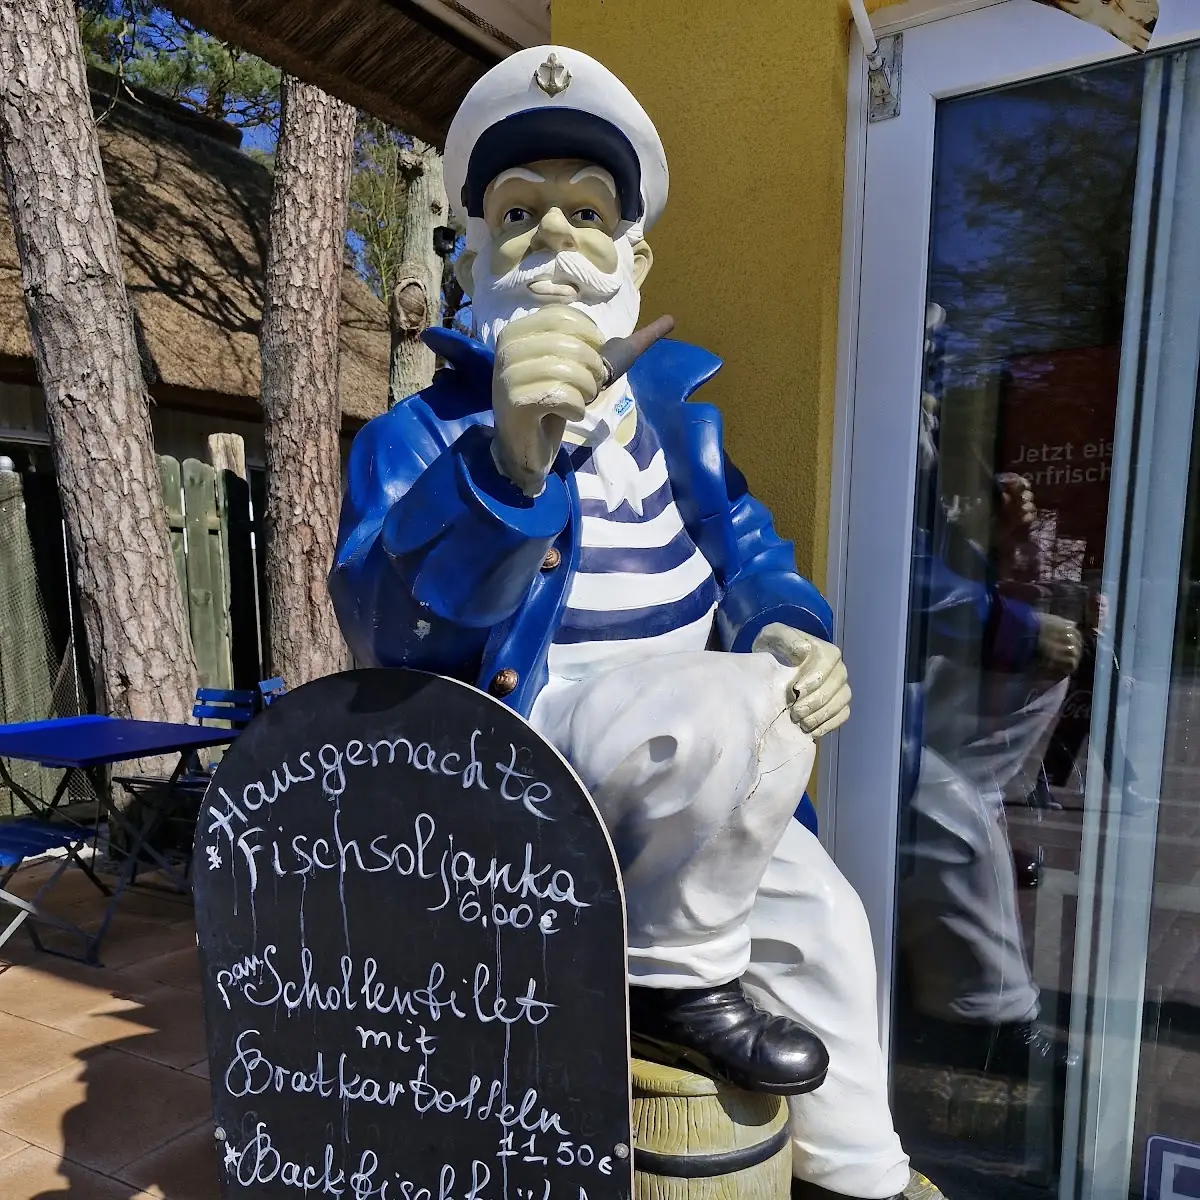 * Hausgemachte
Fischsoljanka
6,00€
pan. Schollenfilet
mit
Bratkartoffeln
11.50€
* Backfisch
Jetzt eis
erfrisch